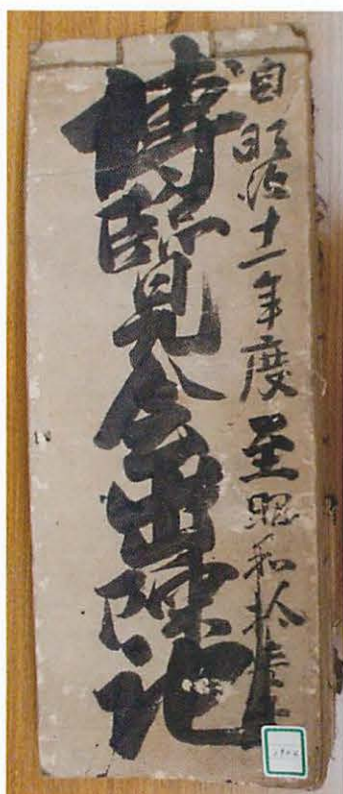 自明治十一年度至昭和拾壱年
博覧会出陳記